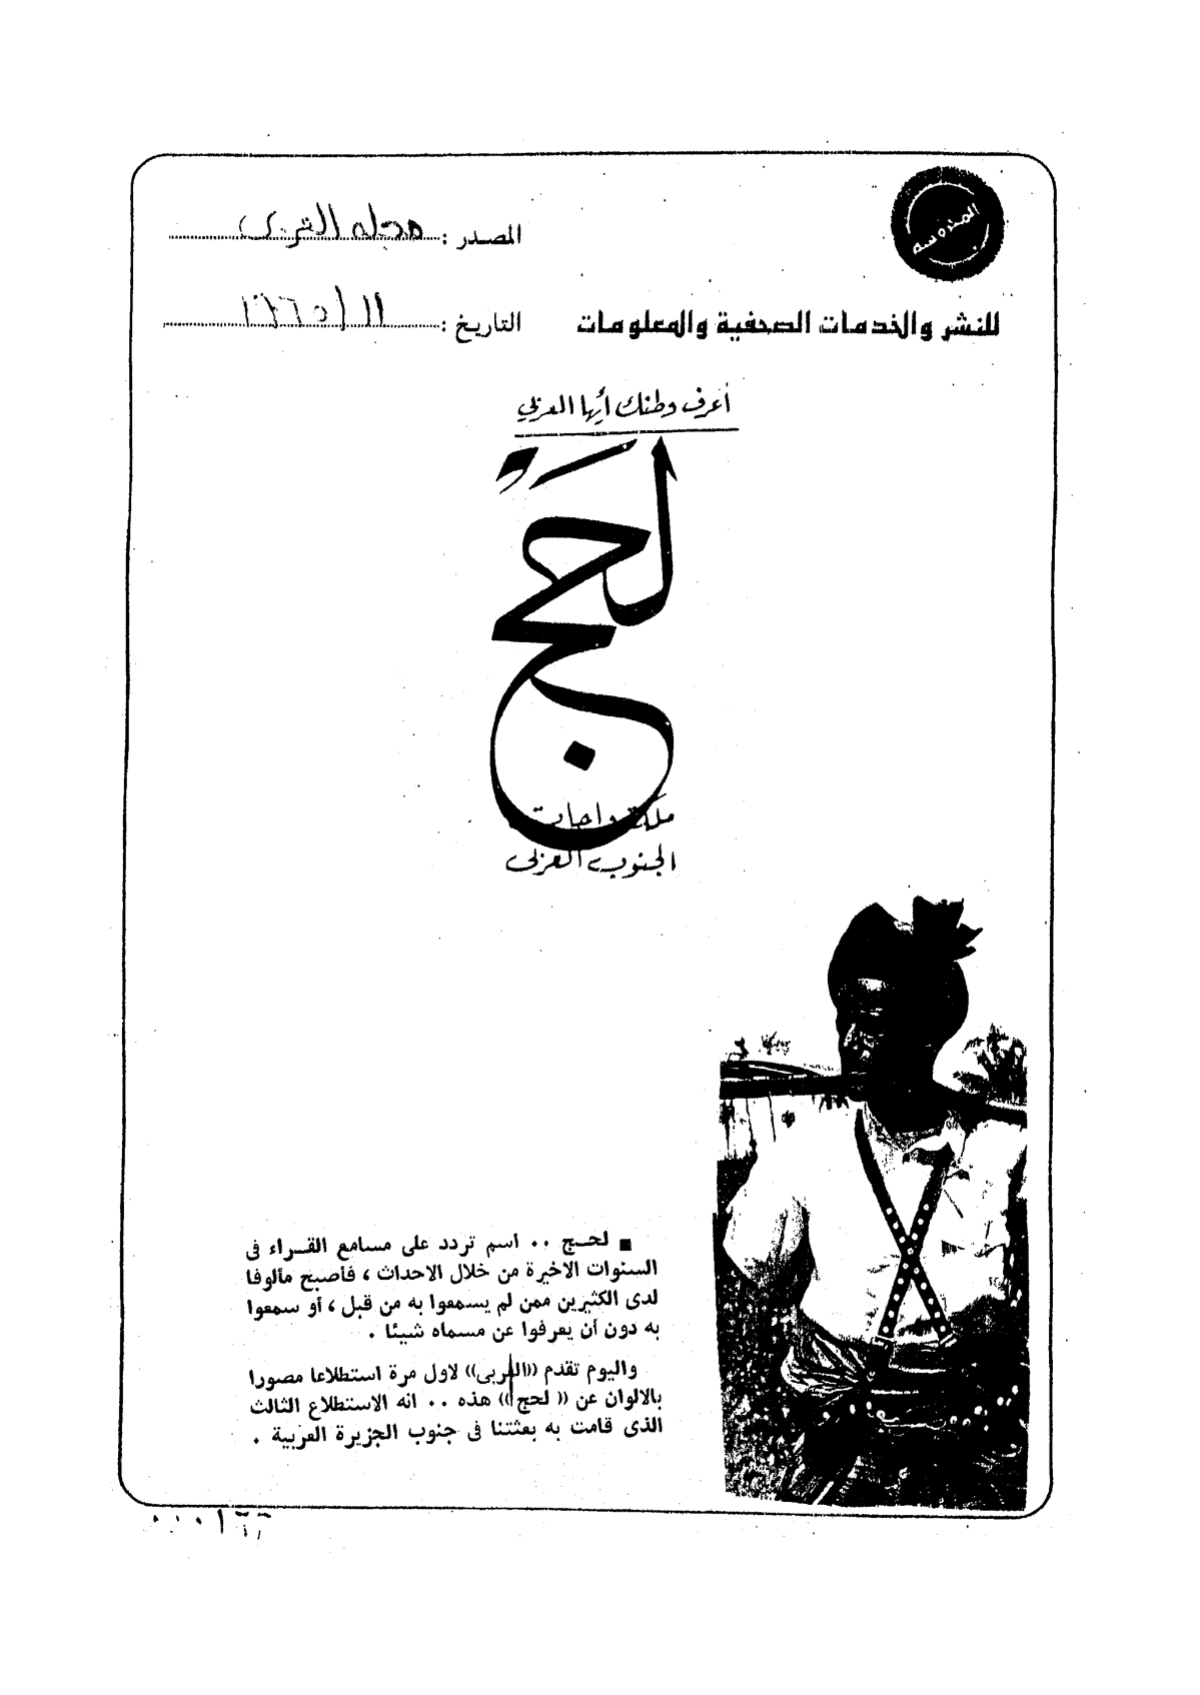 المحروسة
المصدر : مجلة العربى
للنشر والخدمات الصحفية والمعلومات
التاريخ : ١١ / ١٩٦٥
أعرف وطنك أيها العربي
لَحَج
ملكة واحات
الجنوب العربي
■ لحـج .. اسم تردد على مسامع القـراء فى
السنوات الاخيرة من خلال الاحداث ، فأصبح مألوفا
لدى الكثيرين ممن لم يسمعوا به من قبل ، أو سمعوا
به دون أن يعرفوا عن مسماه شيئا .
واليوم تقدم ((العربى)) لاول مرة استطلاعا مصورا
بالالوان عن (( لحج )) هذه .. انه الاستطلاع الثالث
الذى قامت به بعثتنا فى جنوب الجزيرة العربية .